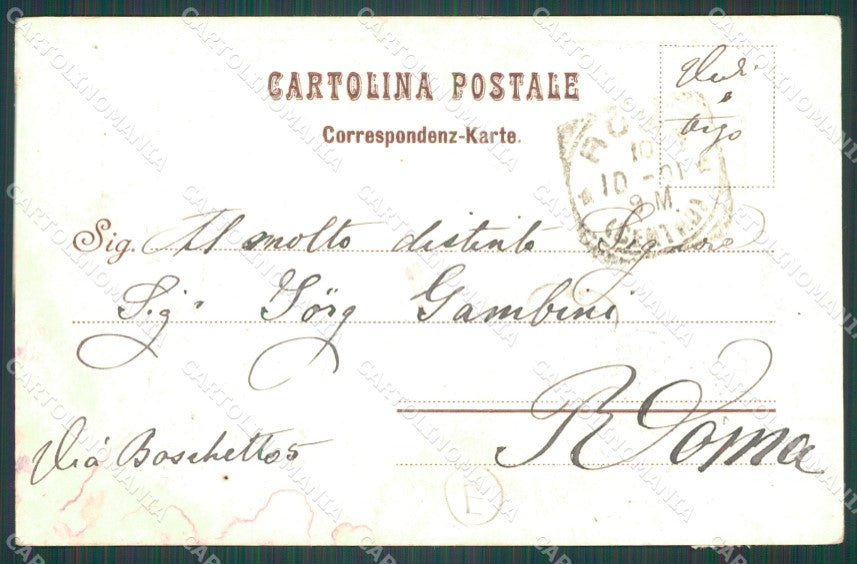 CARTOLINA POSTALE
Correspondenz-Karte.
Vedi
tergo
10
10 - 01
9 M
(CENTRO)
Sig. Al molto distinto Signore
Sigr Jörg Gambini
Roma
Via Boschetto 5
E
CARTOLINOMANIA